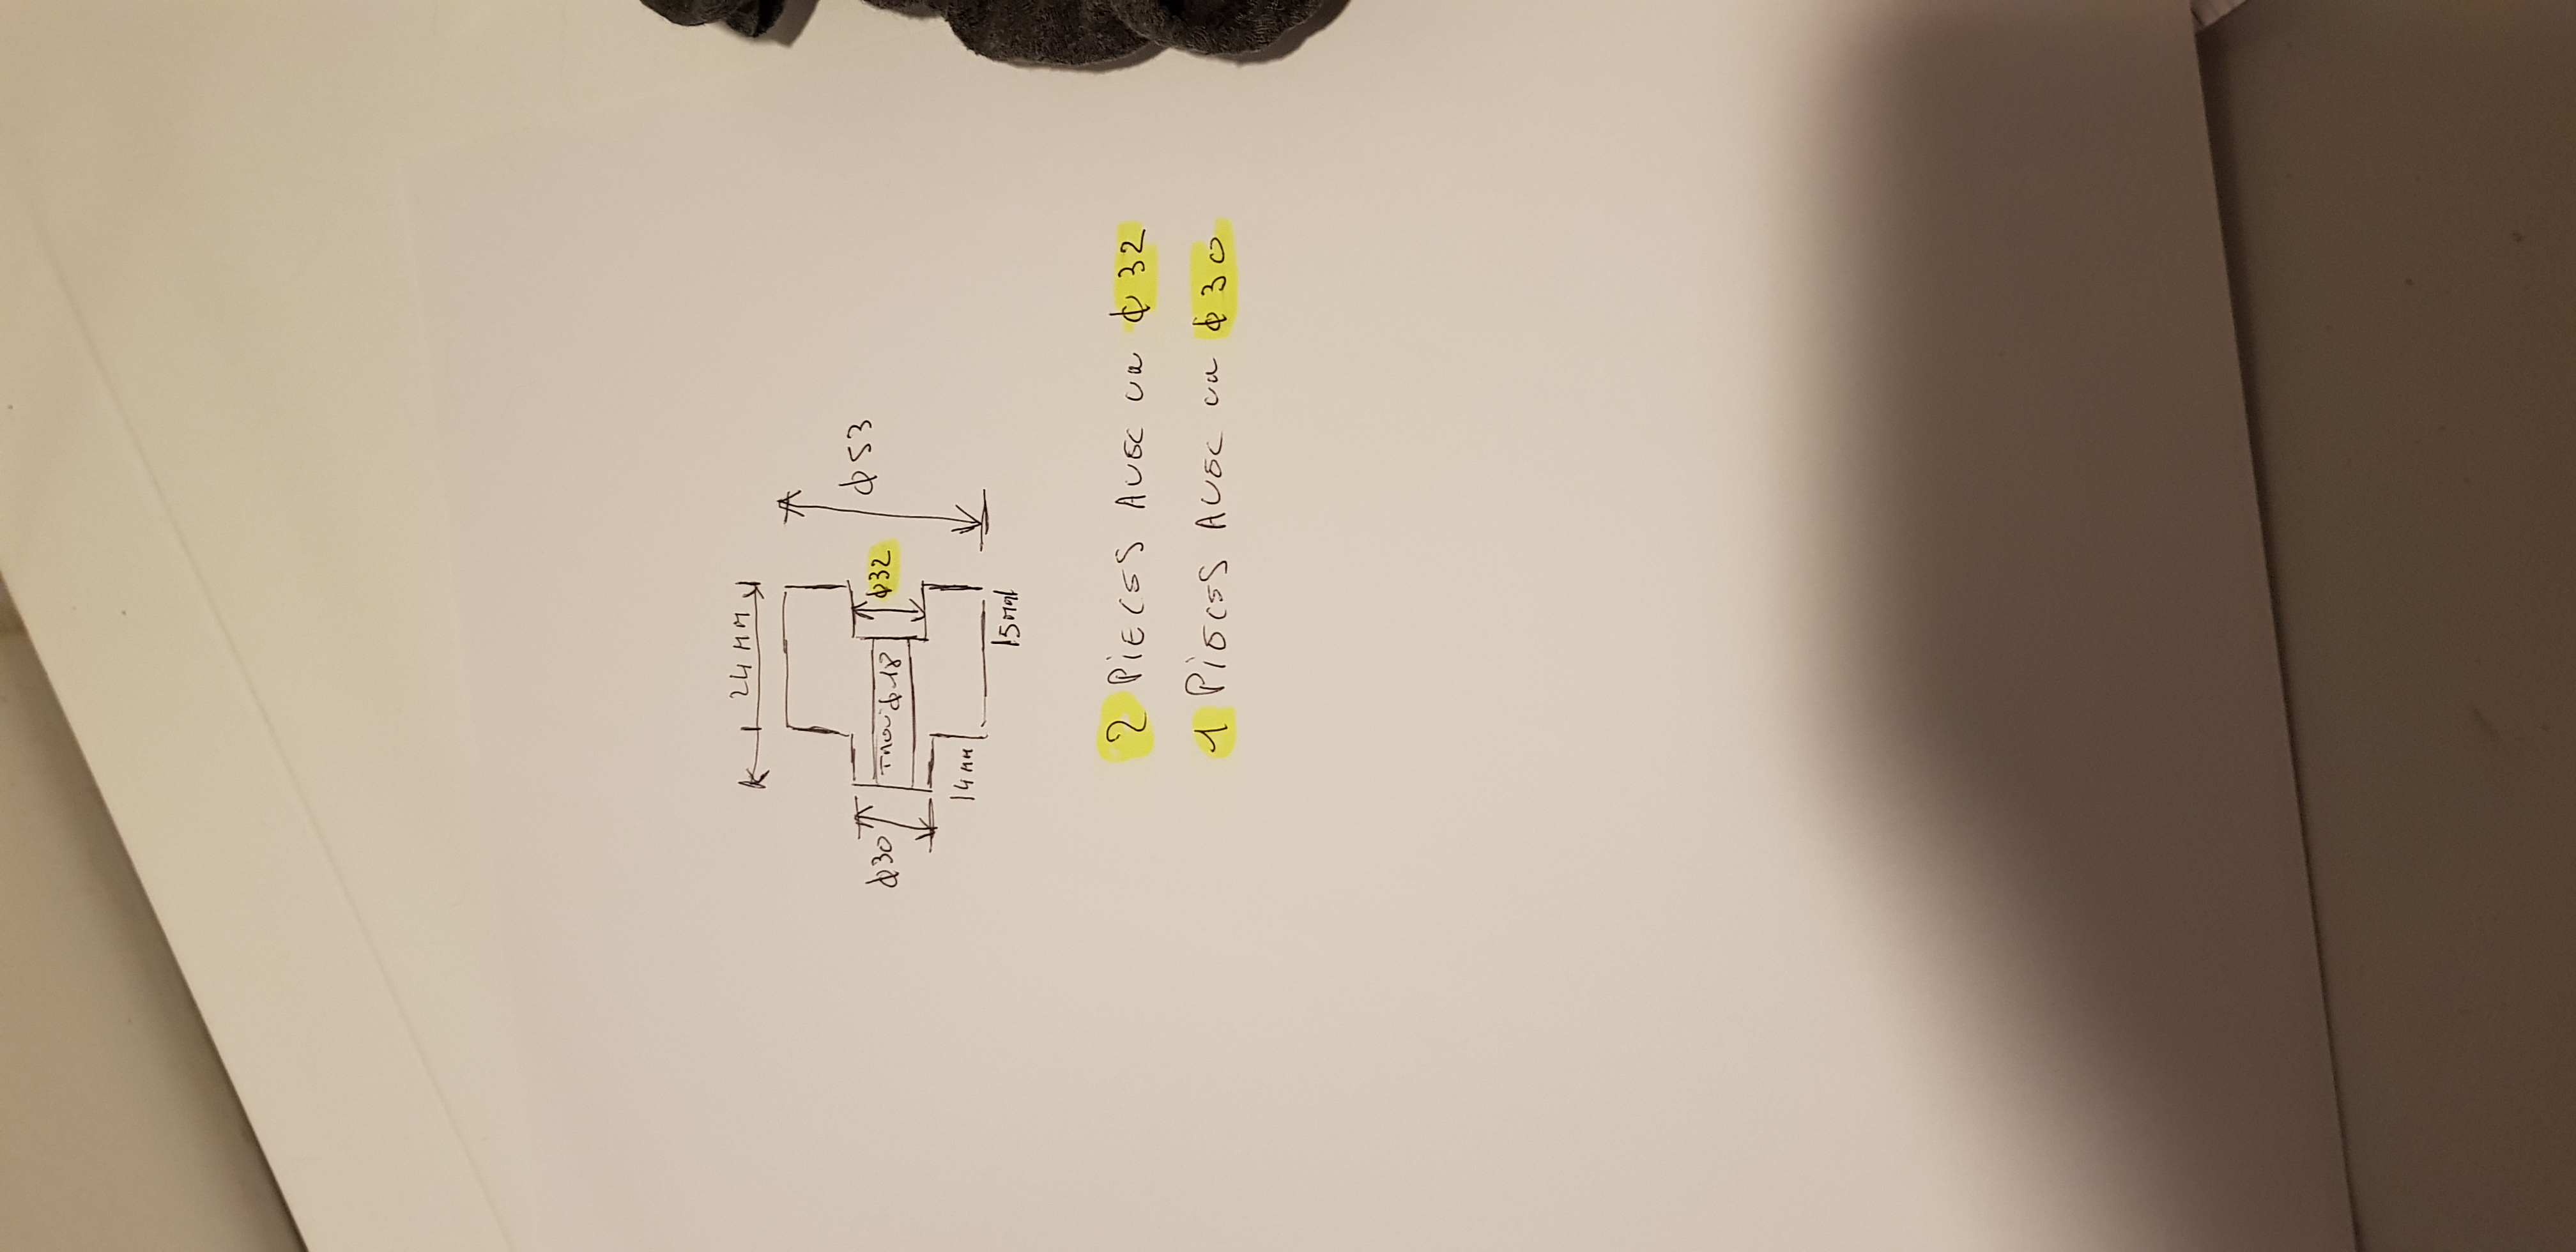 24 MM
φ53
φ32
Trou φ18
φ30
15mm
14 MM
2 PIECES AVEC un φ32
1 PIECES AVEC un φ30